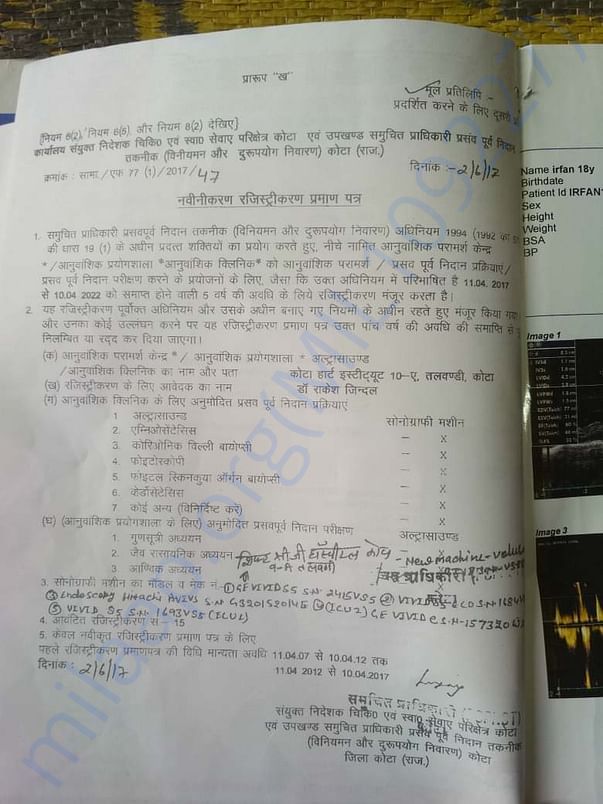 प्रारूप "ख"
मूल प्रतिलिपि -
प्रदर्शित करने के लिए दूसरी
[नियम 6(2), नियम 6(5) और नियम 8(2) देखिए]
कार्यालय संयुक्त निदेशक चिकि0 एवं स्वा0 सेवाए परिक्षेत्र कोटा एवं उपखण्ड समुचित प्राधिकारी प्रसंव पूर्व निदान
तकनीक (विनियमन और दुरूपयोग निवारण) कोटा (राज.)
क्रमांक : सामा./एफ 77 (1)/2017/47
दिनांक :-2/6/17
नवीनीकरण रजिस्ट्रीकरण प्रमाण पत्र
1. समुचित प्राधिकारी प्रसवपूर्व निदान तकनीक (विनियमन और दुरूपयोग निवारण) अधिनियम 1994 (1992 का
की धारा 19 (1) के अधीन प्रदत्त शक्तियों का प्रयोग करते हुए, नीचे नामित आनुवांशिक परामर्श केन्द्र
*/आनुवांशिक प्रयोगशाला *आनुवांशिक क्लिनिक* को आनुवांशिक परामर्श / प्रसव पूर्व निदान प्रक्रियाएं/
प्रसव पूर्व निदान परीक्षण करने के प्रयोजनों के लिए, जैसा कि उक्त अधिनियम में परिभाषित है 11.04. 2017
से 10.04 2022 को समाप्त होने वाली 5 वर्ष की अवधि के लिये रजिस्ट्रीकरण मंजूर करता है।
2. यह रजिस्ट्रीकरण पूर्वोक्त अधिनियम और उसके अधीन बनाए गए नियमों के अधीन रहते हुए मंजूर किया गया
और उनका कोई उल्लघंन करने पर यह रजिस्ट्रीकरण प्रमाण पत्र उक्त पांच वर्ष की अवधि की समाप्ति से
निलम्बित या रदद् कर दिया जाएगा।
(क) आनुवांशिक परामर्श केन्द्र * / आनुवांशिक प्रयोगशाला * अल्ट्रासाउण्ड
/आनुवांशिक क्लिनिक का नाम और पता कोटा हार्ट इस्टीट्यूट 10–ए, तलवण्डी, कोटा
(ख) रजिस्ट्रीकरण के लिए आवेदक का नाम डॉ राकेश जिन्दल
(ग) आनुवांशिक क्लिनिक के लिए अनुमोदित प्रसव पूर्व निदान प्रक्रियाएं
1 अल्ट्रासाउन्ड सोनोग्राफी मशीन
2. एमनिओसेंटेसिस – X
3. कोरिओनिक विल्ली बायोप्सी – X
4. फोइटोस्कोपी – X
5. फोइटल स्किनकुया ऑर्गन बायोप्सी – X
6. केर्डोसेंटेसिस – X
7 कोई अन्य (विनिर्दिष्ट करें) – X
(घ) (आनुवांशिक प्रयोगशाला के लिए) अनुमोदित प्रसवपूर्व निदान परीक्षण
1. गुणसूत्री अध्ययन अल्ट्रासाउण्ड
2. जैव रासायनिक अध्ययन श्री जी हॉस्पीटल कोटा - New machine -
3. आण्विक अध्ययन
3. सोनोग्राफी मशीन का मॉडल व मेक नं.- ① GE VIVID S5 S.N. 2415VS5 ② VIVID S5
③ Endoscopy Hitachi AVIUS S.N G3201520145 ④ (ICU2) GE VIVID e S.N-157320
⑤ VIVID S5 S.N. 1693VS5 (ICU1)
4. आवंटित रजिस्ट्रीकरण सं – 15
5. केवल नवीकृत रजिस्ट्रीकरण प्रमाण पत्र के लिए
पहले रजिस्ट्रीकरण प्रमाणपत्र की विधि मान्यता अवधि 11.04.07 से 10.04.12 तक
11.04 2012 से 10.04.2017
दिनांक : 2/6/17
समुचित प्राधिकारी
संयुक्त निदेशक चिकि0 एवं स्वा0 सेवाए परिक्षेत्र कोटा
एवं उपखण्ड समुचित प्राधिकारी प्रसंव पूर्व निदान तकनीक
(विनियमन और दुरूपयोग निवारण) कोटा
जिला कोटा (राज.)
Name irfan 18y
Birthdate
Patient Id IRFAN
Sex
Height
Weight
BSA
BP
Image 1
Image 3